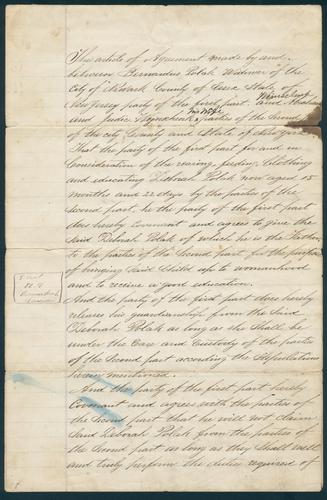 This article of Agreement made by and
between Bernardus Polak Widower of the
City of Newark County of Essex State of
New Jersey party of the first part and Abraham
and Judic his wife parties of the Second
of the city County and State of New York
That the party of the first part for and in
Consideration of the rearing, feeding, Clothing
and educating Deborah Polak now aged 15
months and 22 days by the parties of the
Second part, he the party of the first part
does hereby Covenant and agrees to give the
Said Deborah Polak of which he is the Father
to the parties of the Second part for the purpose
of bringing Said Child up to womanhood
and to receive a good education.
And the party of the first part does hereby
releases his guardianship from the Said
Deborah Polak as long as She Shall be
under the Care and Custody of the parties
of the Second part according the Stipulations
herein mentioned.
And the party of the first part hereby
Covenant and agrees with the parties of
the Second part that he will not Claim
Said Deborah Polak from the parties of
the Second part as long as they Shall well
and truly perform the duties required of